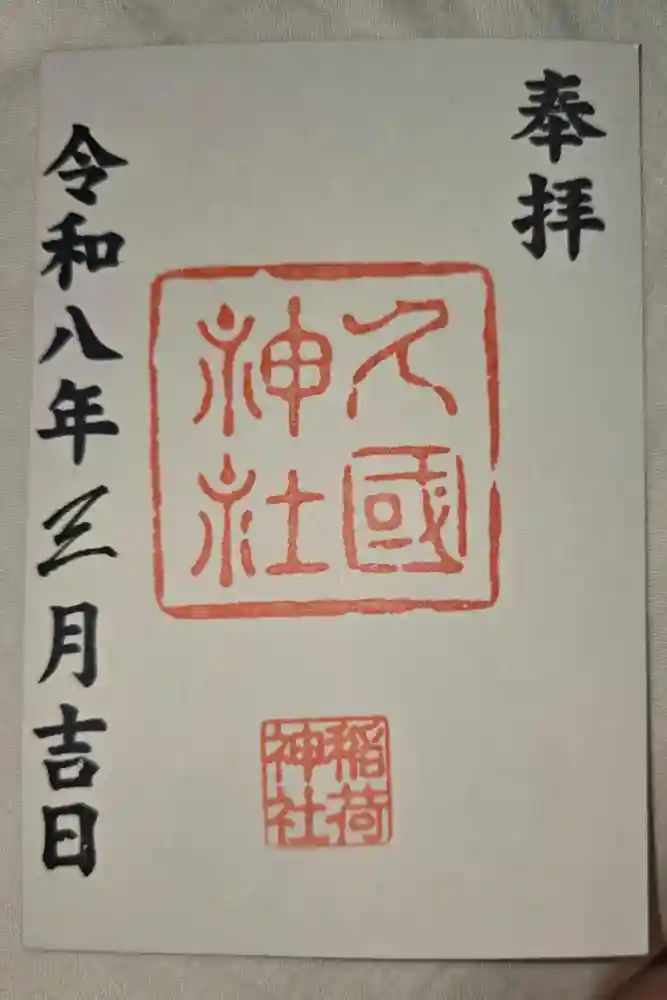 奉拝
久國
神社
稲荷
神社
令和八年三月吉日